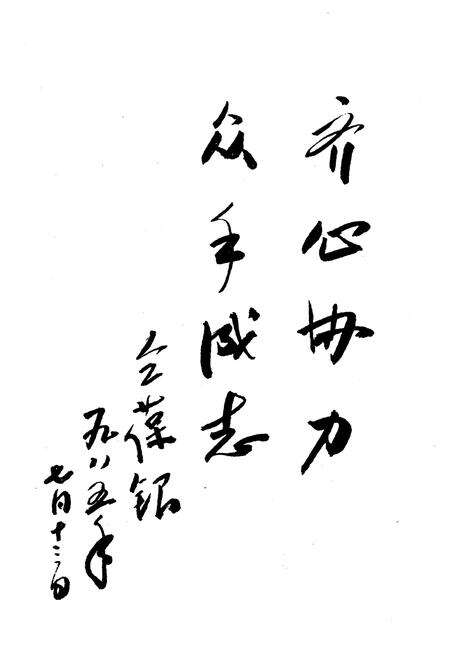 齐心协力
众手成志
一九八五年
七月十日